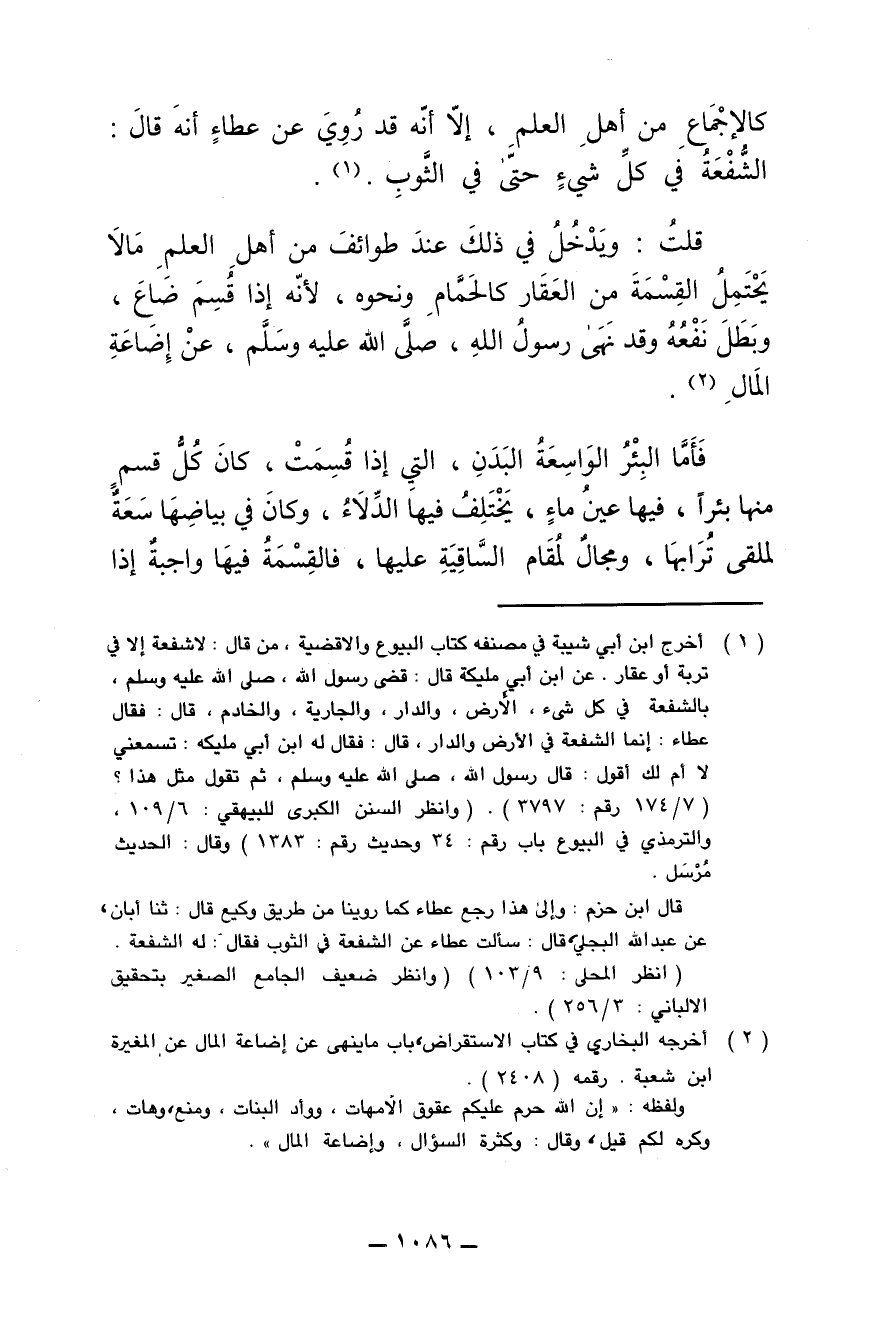 كالإجْمَاعِ من أهلِ العلمِ ، إلاّ أنّه قد رُوِيَ عن عطاءٍ أنهَ قالَ :
الشُّفْعَةُ في كلِّ شيءٍ حتىَّٰ في الثَّوبِ .(١) .
قلتُ : ويَدْخُلُ في ذلكَ عندَ طوائفَ من أهلِ العلمِ مَالاَ
يَحْتَمِلُ القِسْمَةَ من العَقَار كالحَمَّامِ ونحوه ، لأنّه إذا قُسِمَ ضَاعَ ،
وبَطَلَ نَفْعُهُ وقد نَهَىٰ رسولُ اللهِ ، صلَّى الله عليه وسَلَّم ، عنْ إِضَاعَةِ
المَالِ (٢) .
فَأَمَّا البِئْرُ الوَاسِعَةُ البَدَنِ ، التيِ إذا قُسِمَتْ ، كانَ كُلُّ قسمٍ
منها بئراً ، فيها عينُ ماءٍ ، يَخْتَلِفُ فيها الدِّلَاءُ ، وكانَ في بياضِهَا سَعَةٌ
لملقى تُرَابِهَا ، ومجالٌ لمُقَام السَّاقِيَةِ عليها ، فالقِسْمَةُ فيهَا واجبةٌ إذا
( ١ ) أخرج ابن أبي شيبة في مصنفه كتاب البيوع والاقضية ، من قال : لاشفعة إلا في
تربة أو عقار . عن ابن أبي مليكة قال : قضى رسول الله ، صلى الله عليه وسلم ،
بالشفعة في كل شىء ، الأرض ، والدار ، والجارية ، والخادم ، قال : فقال
عطاء : إنما الشفعة في الأرض والدار ، قال : فقال له ابن أبي مليكه : تسمعني
لا أم لك أقول : قال رسول الله ، صلى الله عليه وسلم ، ثم تقول مثل هذا ؟
( ١٧٤/٧ رقم : ٣٧٩٧ ) . ( وانظر السنن الكبرى للبيهقي : ١٠٩/٦ ،
والترمذي في البيوع باب رقم : ٣٤ وحديث رقم : ١٣٨٣ ) وقال : الحديث
مُرْسَل .
قال ابن حزم : وإلىٰ هذا رجع عطاء كما روينا من طريق وكيع قال : ثنا أبان،
عن عبدالله البجلي، قال : سألت عطاء عن الشفعة في الثوب فقال : له الشفعة .
( انظر المحلى : ١٠٣/٩ ) ( وانظر ضعيف الجامع الصغير بتحقيق
الالباني : ٢٥٦/٣ ) .
( ٢ ) أخرجه البخاري في كتاب الاستقراض، باب ماينهى عن إضاعة المال عن المغيرة
ابن شعبة . رقمه ( ٢٤٠٨ ) .
ولفظه : « إن الله حرم عليكم عقوق الأمهات ، ووأد البنات ، ومنع، وهات ،
وكره لكم قيل، وقال : وكثرة السؤال ، وإضاعة المال » .
– ١٠٨٦ –